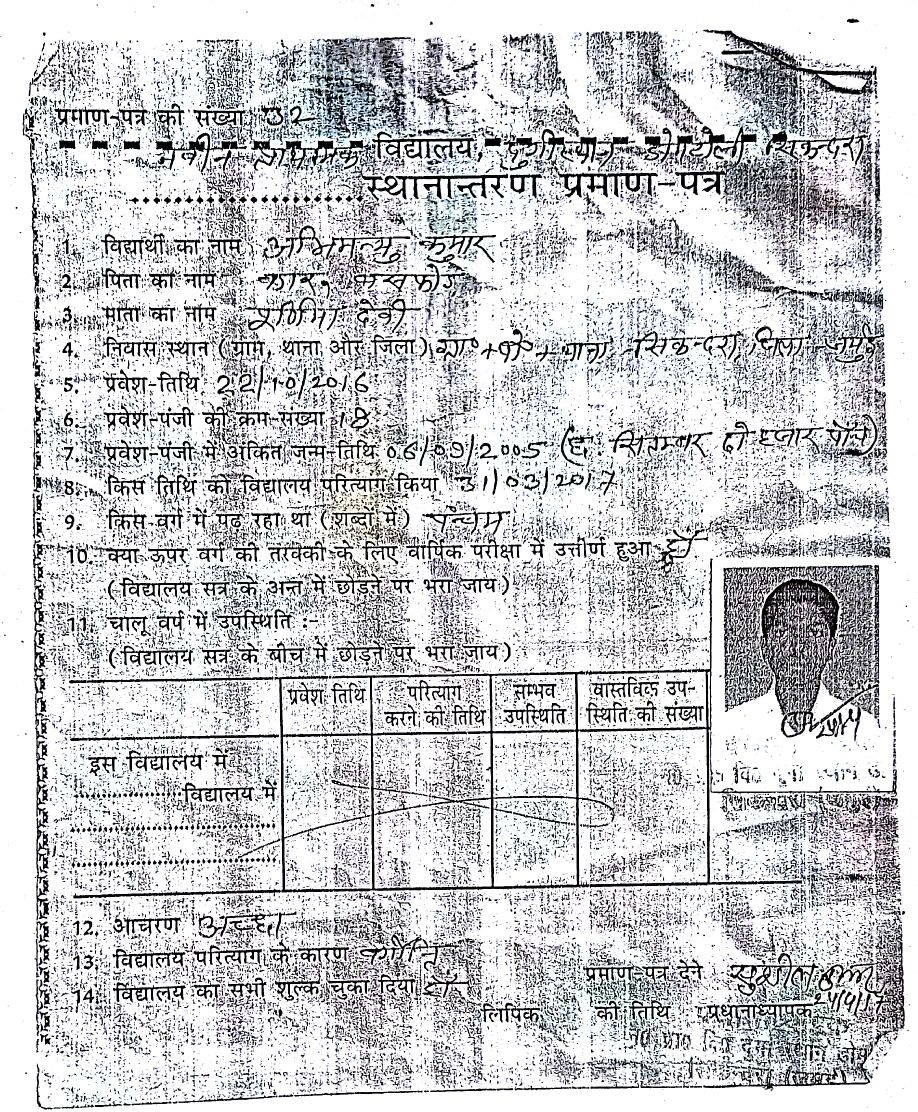 प्रमाण-पत्र की संख्या 02
नवीन प्राथमिक विद्यालय, सिकन्दरा
स्थानान्तरण प्रमाण-पत्र
1. विद्यार्थी का नाम अभिमन्यु कुमार
2. पिता का नाम
3. माता का नाम देवी
4. निवास स्थान (ग्राम, थाना और जिला) ग्रा०+पो०+थाना - सिकन्दरा, जिला - जमुई
5. प्रवेश-तिथि 22/10/2016
6. प्रवेश-पंजी की क्रम-संख्या 18
7. प्रवेश-पंजी में अंकित जन्म-तिथि 06/09/2005 (छः सितम्बर दो हजार पाँच)
8. किस तिथि को विद्यालय परित्याग किया 31/03/2017
9. किस वर्ग में पढ़ रहा था (शब्दों में) पंचम
10. क्या ऊपर वर्ग की तरक्की के लिए वार्षिक परीक्षा में उत्तीर्ण हुआ हाँ
(विद्यालय सत्र के अन्त में छोड़ने पर भरा जाय)
11. चालू वर्ष में उपस्थिति :-
(विद्यालय सत्र के बीच में छोड़ने पर भरा जाय)
प्रवेश तिथि परित्याग करने की तिथि सम्भव उपस्थिति वास्तविक उप-स्थिति की संख्या
इस विद्यालय में
विद्यालय में
12. आचरण अच्छा
13. विद्यालय परित्याग के कारण
14. विद्यालय का सभी शुल्क चुका दिया हाँ
प्रमाण-पत्र देने
लिपिक की तिथि प्रधानाध्यापक